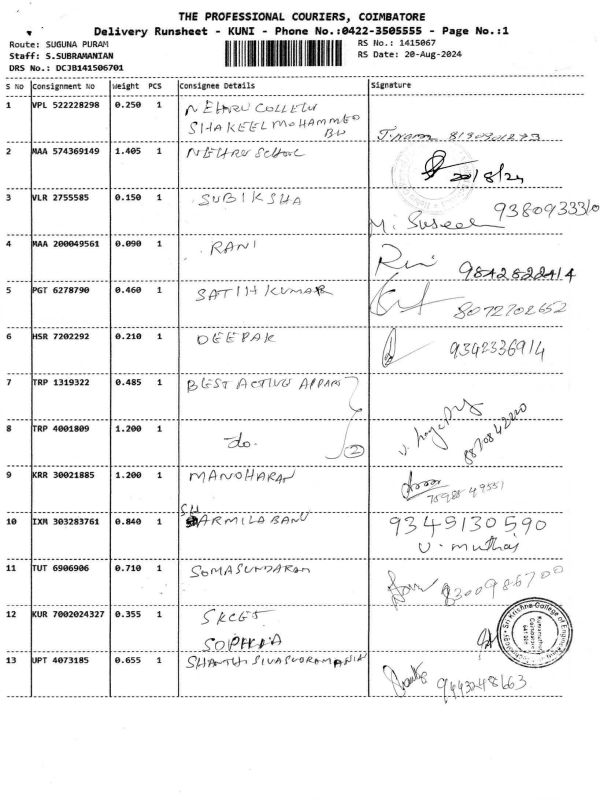 THE PROFESSIONAL COURIERS, COIMBATORE
Delivery Runsheet - KUNI - Phone No.:0422-3505555 - Page No.:1
Route: SUGUNA PURAM RS No.: 1415067
Staff: S.SUBRAMANIAN RS Date: 20-Aug-2024
DRS No.: DCJB141506701
S No Consignment No Weight PCS Consignee Details Signature
1 VPL 522228298 0.250 1 NEHRU COLLEGE
SHAKEEL MOHAMMED
2 MAA 574369149 1.405 1 NEHRU School 20/8/24
3 VLR 2755585 0.150 1 SUBIKSHA 9380933310
4 MAA 200049561 0.090 1 RANI 9842822414
5 PGT 6278790 0.460 1 SATISH KUMAR 8072702652
6 HSR 7202292 0.210 1 DEEPAK 9342336914
7 TRP 1319322 0.485 1 BLEST ACTIVE
8 TRP 4001809 1.200 1 do. 2
9 KRR 30021885 1.200 1 MANOHARAN
10 IXM 303283761 0.840 1 SHARMILA BANU 9345130590
11 TUT 6906906 0.710 1 SOMASUNDARAM
12 KUR 7002024327 0.355 1 SKCET
SOPHIA
13 UPT 4073185 0.655 1 SHANTHI SIVASUBRAMANIAN